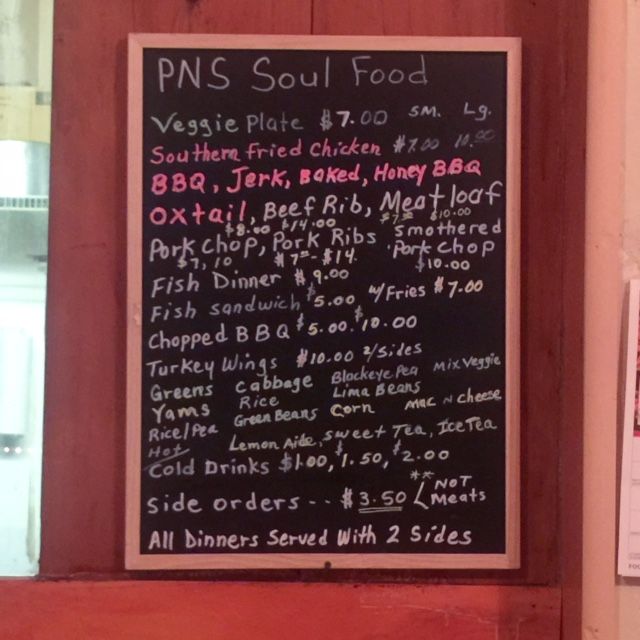 PNS Soul Food
Veggie Plate $7.00 SM. Lg.
Southern Fried Chicken $7.00 10.00
BBQ, Jerk, Baked, Honey BBQ
Oxtail, Beef Rib, Meatloaf
$8.00 $14.00 $7.50 $10.00
Pork Chop, Pork Ribs smothered Pork Chop
$7, 10 $7.00 - $14 $10.00
Fish Dinner $9.00
Fish sandwich $5.00 w/Fries $7.00
Chopped BBQ $5.00. $10.00
Turkey Wings $10.00 2/Sides
Greens Cabbage Blackeye Pea Mix Veggie
Yams Rice Lima Beans
Rice/Pea Green Beans Corn Mac N Cheese
Hot Lemon Aide, Sweet Tea, Ice Tea
Cold Drinks $1.00, $1.50, $2.00
Side orders --- $3.50 ** NOT Meats
All Dinners Served With 2 Sides